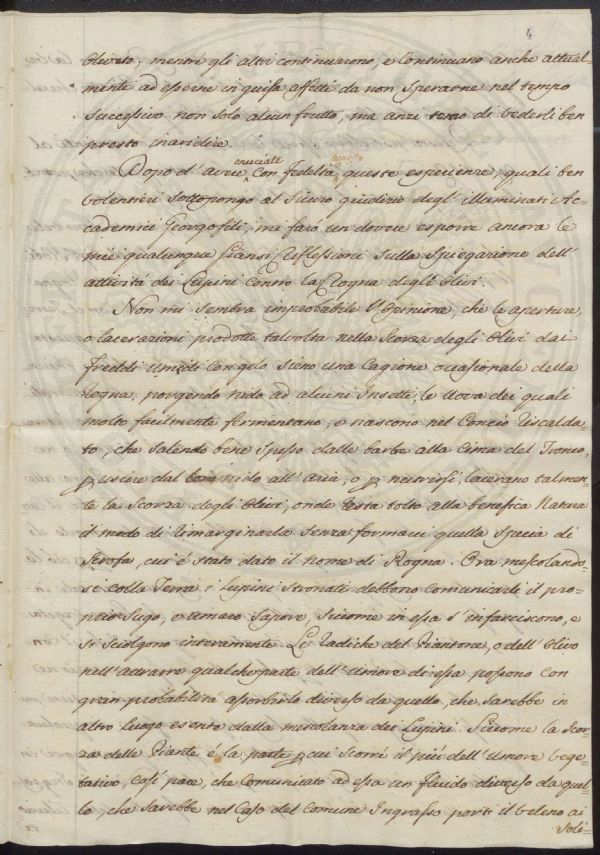 4
Oliveto; mentre gli altri continuarono, e continuano anche attual-
mente ad esserne in guisa affetti da non sperarne nel tempo
successivo non solo alcun frutto, ma anzi temo di vederli ben
presto inaridire.
Dopo d'avere enuciate con fedeltà queste esperienze, quali ben
volentieri sottopongo al sicuro giudizio degl'illuminati Ac-
cademici Georgofili, mi farò un dovere esporre ancora le
mie qualunque siansi Riflessioni sulla spiegazione dell'
attività dei Lupini contro la Rogna degli Olivi.
Non mi sembra improbabile l'Opinione, che le aperture,
o lacerazioni prodotte talvolta nella scorza degli Olivi dai
freddi umidi con gelo sieno una cagione occasionale della
Rogna, porgendo nido ad alcuni Insetti, le uova dei quali
molto facilmente fermentano, e nascono nel Concio riscalda-
to, che salendo bene spesso dalle barbe alla cima del Tronco,
p uscire dal nido all'aria, o p nutrirsi, lacerano talmen-
te la scorza degli Olivi, onde resta tolto alla benefica Natura
il modo di rimarginarla senza formarci quella specie di
Scrofa, cui è stato dato il nome di Rogna. Ora mescolando-
si colla Terra i Lupini stronati debbano comunicarli il pro-
prio sugo, o amaro sapore, siccome in essa s'infarciscono, e
si sciolgono interamente. Le radiche del Piantone, o dell'Olivo
nell'attrarre qualche parte dell'umore di essa possono con
gran probabilità assorbirlo diverso da quello, che sarebbe in
altro luogo esente dalla mescolanza dei Lupini. Siccome la scor-
za delle Piante è la parte p cui scorre il più dell'umore vege-
tativo, così pare, che comunicato ad essa un fluido diverso da quel-
lo che sarebbe nel caso del comune Ingrasso porti il veleno ai
soli-